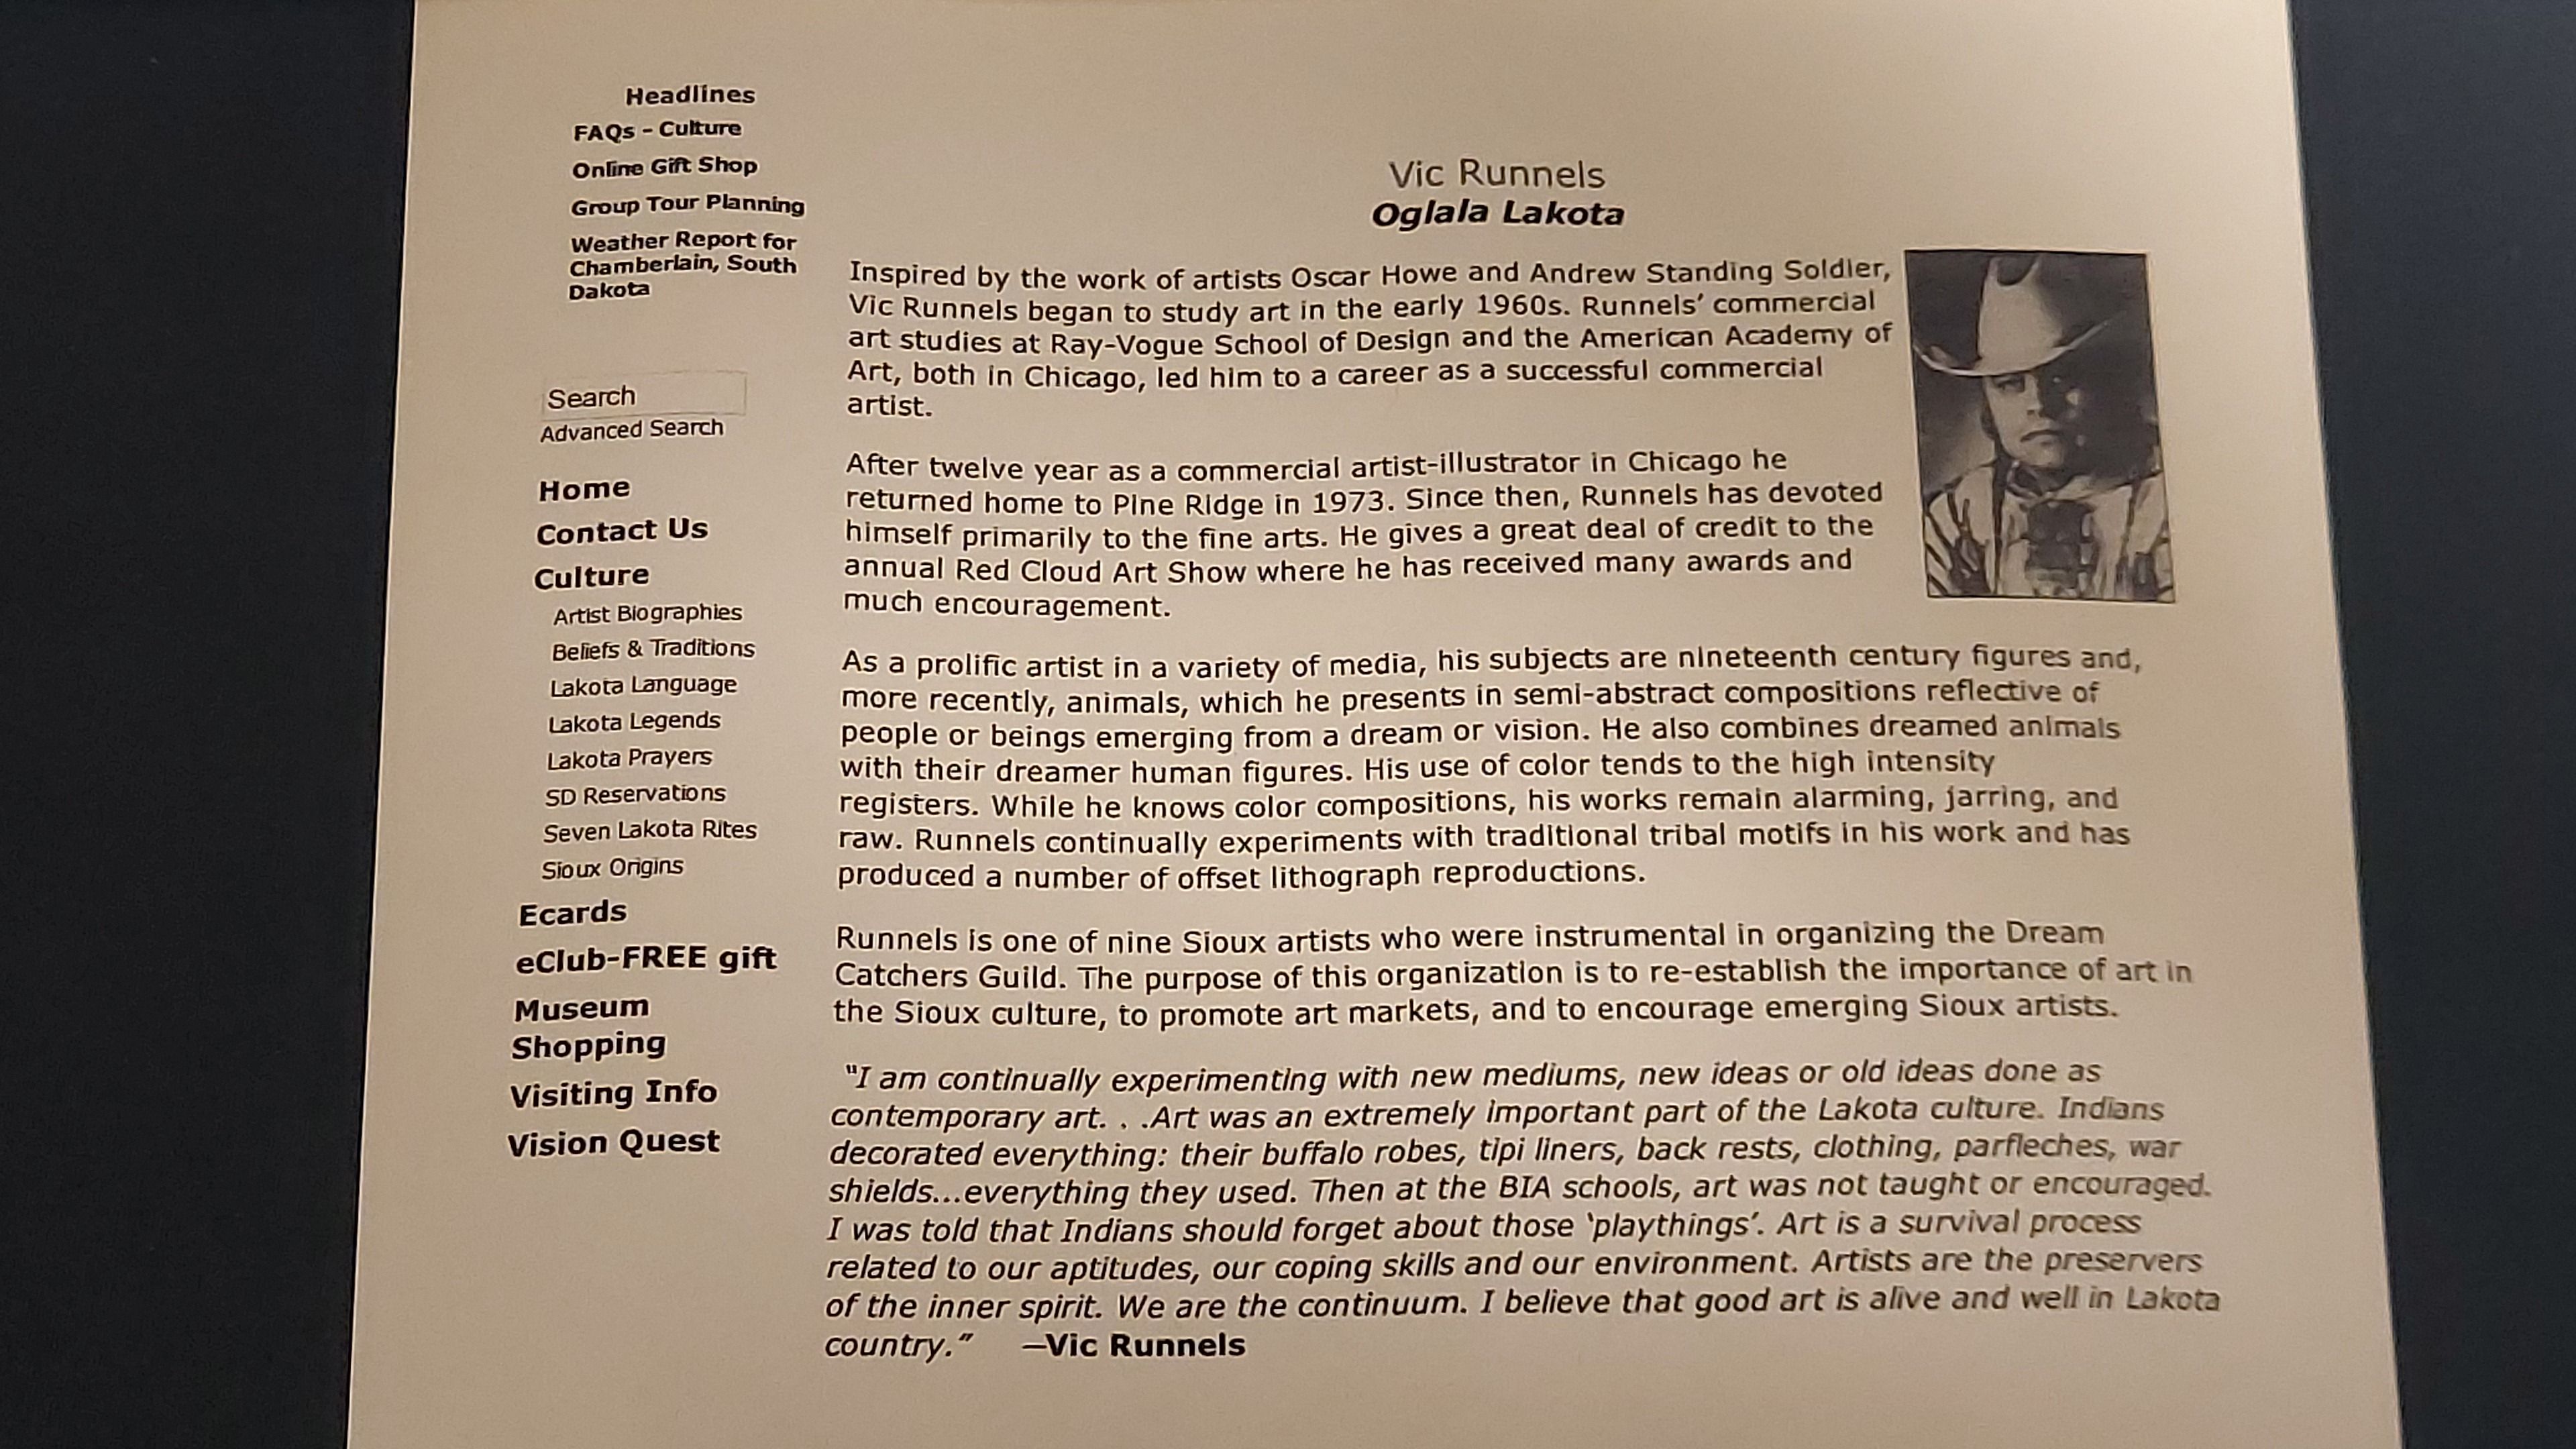 Headlines
FAQs - Culture
Online Gift Shop
Group Tour Planning
Weather Report for
Chamberlain, South
Dakota
Search
Advanced Search
Home
Contact Us
Culture
Artist Biographies
Beliefs & Traditions
Lakota Language
Lakota Legends
Lakota Prayers
SD Reservations
Seven Lakota Rites
Sioux Origins
Ecards
eClub-FREE gift
Museum
Shopping
Visiting Info
Vision Quest
Vic Runnels
Oglala Lakota
Inspired by the work of artists Oscar Howe and Andrew Standing Soldier,
Vic Runnels began to study art in the early 1960s. Runnels’ commercial
art studies at Ray-Vogue School of Design and the American Academy of
Art, both in Chicago, led him to a career as a successful commercial
artist.
After twelve year as a commercial artist-illustrator in Chicago he
returned home to Pine Ridge in 1973. Since then, Runnels has devoted
himself primarily to the fine arts. He gives a great deal of credit to the
annual Red Cloud Art Show where he has received many awards and
much encouragement.
As a prolific artist in a variety of media, his subjects are nineteenth century figures and,
more recently, animals, which he presents in semi-abstract compositions reflective of
people or beings emerging from a dream or vision. He also combines dreamed animals
with their dreamer human figures. His use of color tends to the high intensity
registers. While he knows color compositions, his works remain alarming, jarring, and
raw. Runnels continually experiments with traditional tribal motifs in his work and has
produced a number of offset lithograph reproductions.
Runnels is one of nine Sioux artists who were instrumental in organizing the Dream
Catchers Guild. The purpose of this organization is to re-establish the importance of art in
the Sioux culture, to promote art markets, and to encourage emerging Sioux artists.
"I am continually experimenting with new mediums, new ideas or old ideas done as
contemporary art. . .Art was an extremely important part of the Lakota culture. Indians
decorated everything: their buffalo robes, tipi liners, back rests, clothing, parfleches, war
shields...everything they used. Then at the BIA schools, art was not taught or encouraged.
I was told that Indians should forget about those ‘playthings’. Art is a survival process
related to our aptitudes, our coping skills and our environment. Artists are the preservers
of the inner spirit. We are the continuum. I believe that good art is alive and well in Lakota
country.” —Vic Runnels